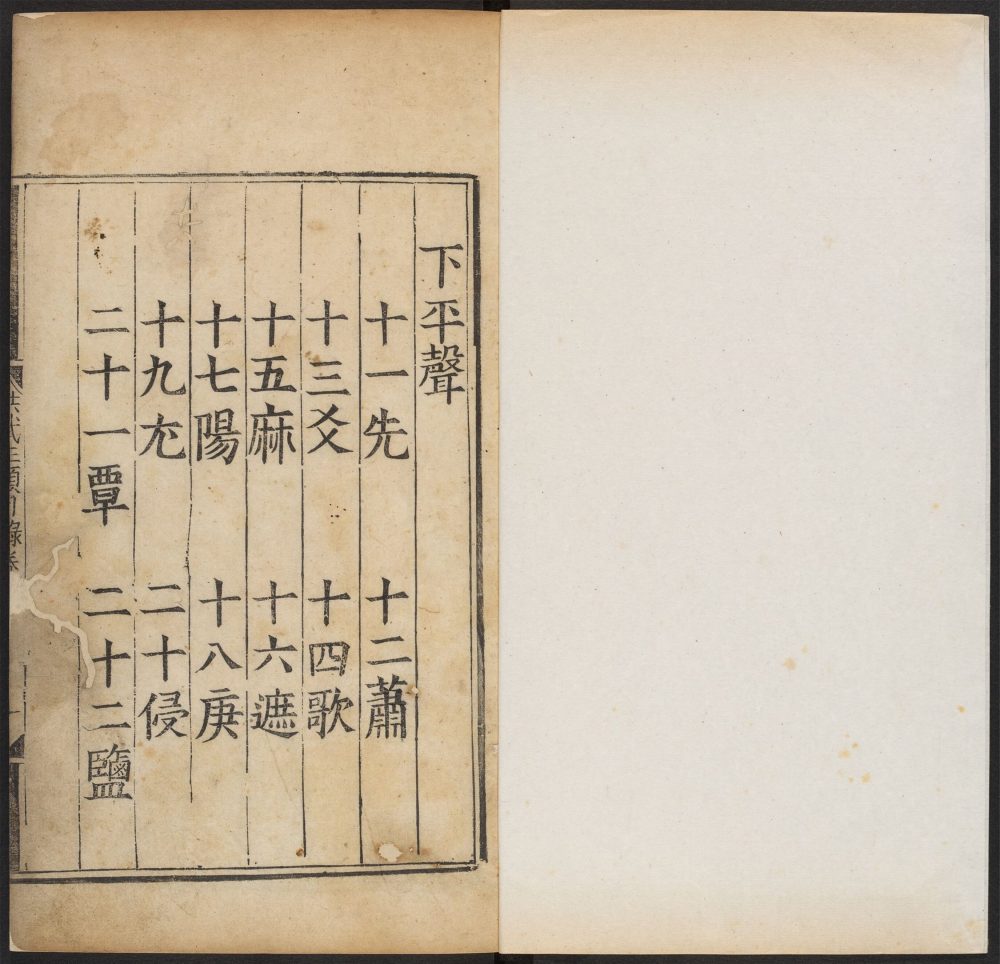 下平聲
十一先 十二蕭
十三爻 十四歌
十五麻 十六遮
十七陽 十八庚
十九尤 二十侵
二十一覃 二十二鹽
洪武正韻目錄